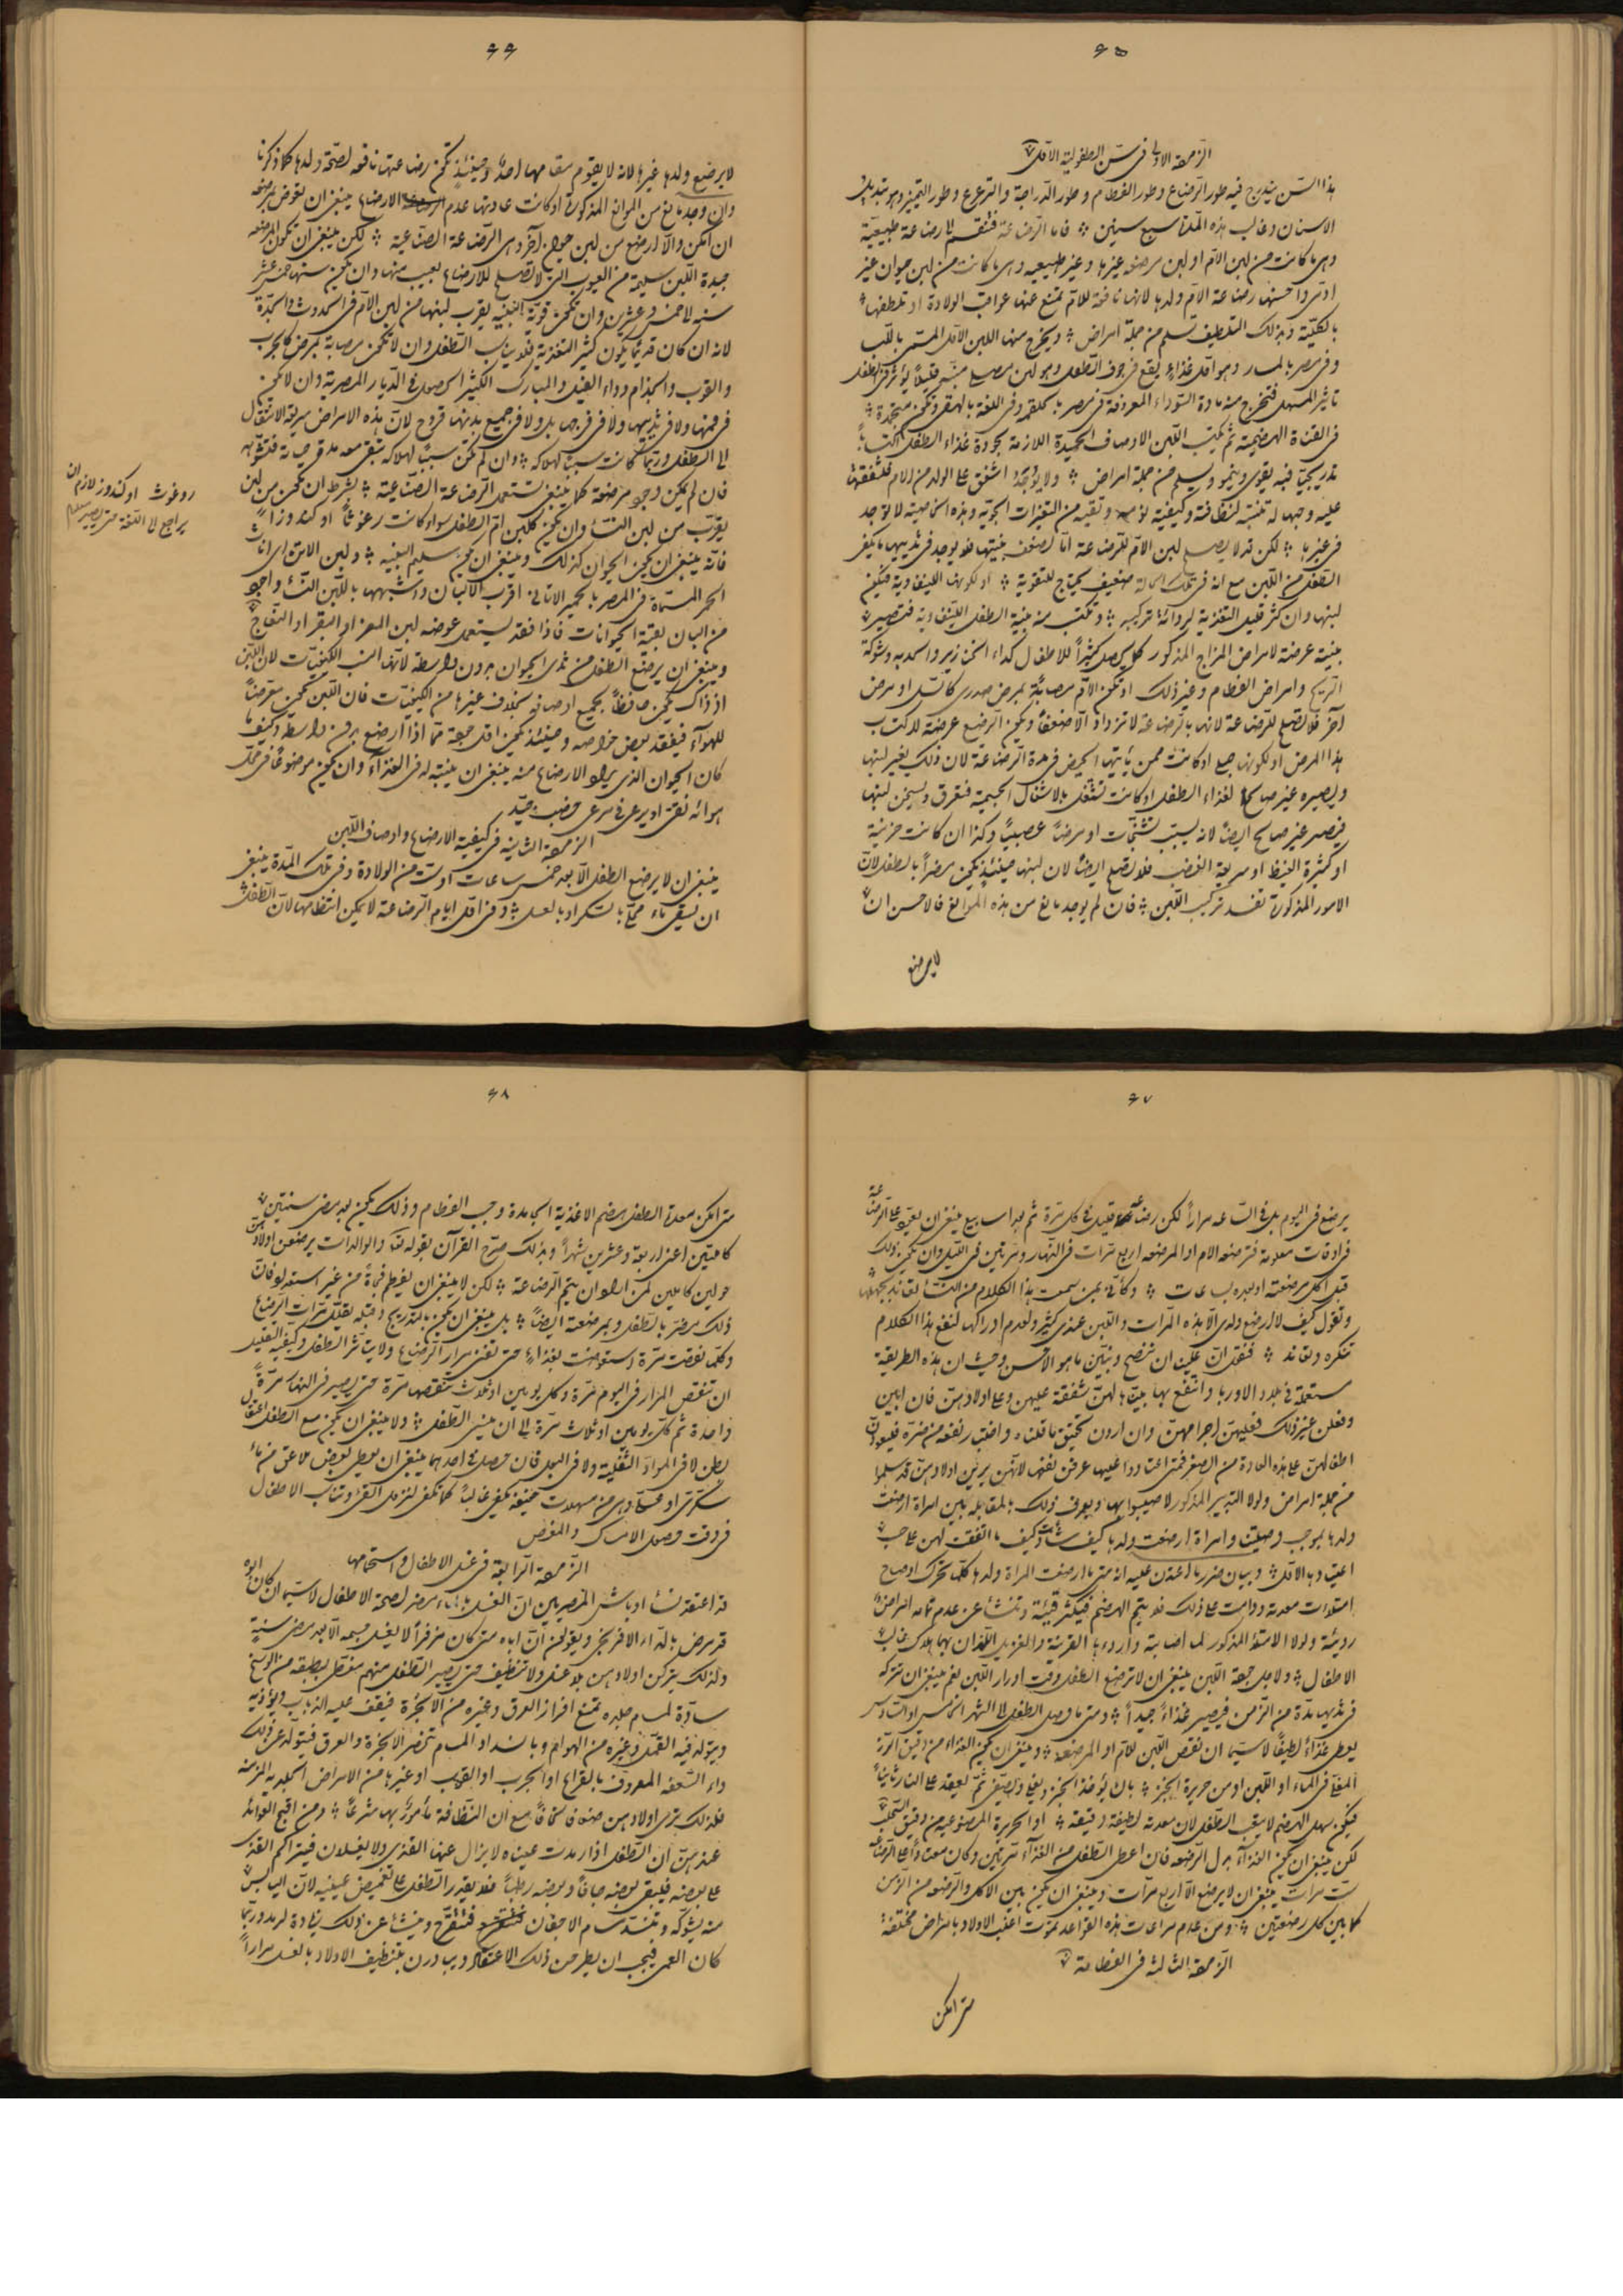 ۶۵
الزمرة الاولى فى سن الطفولية الاولى
هذا السن يندرج فيه طور الرضاع وطور الفطام وطور الدراجة والترعرع وطور التميز وهو تبديل
الاسنان وغالب هذه المدة سبع سنين فاما الرضاعة فتنقسم الى رضاعة طبيعية
وهى ما كانت من لبن الام او لبن مرضعة غيرها وغير طبيعيه وهى ما كانت من لبن حيوان غير
آدمى واحسنها رضاعة الام ولدها لانها نافعة للام تمنع عنها عواقب الولادة او تلطفها
بالكلية وبذلك التلطيف تسلم من جملة امراض ويخرج منها اللبن الاول المسمى باللبا
وفى مصر بالمسمار وهو اول غذاء يقع فى جوف الطفل وهو لبن يؤثر فى الطفل
تأثير المسهل فتخرج منه مادة السوداء المعروفة فى مصر وفى اللغة بالعقى وتكون متجمدة
فى القناة الهضمية ثم يكتسب اللبن الاوصاف الحميدة اللازمة لجودة غذاء الطفل اكتسابا
تدريجيا فبه يقوى وينمو ويسلم من جملة امراض ولا يوجد اشفق على الولد من الام فلشفقتها
عليه وحبها له تنتبه لنظافته وكيفية نومه وتقيه من التغيرات الجوية وهذه الخاصية لا توجد
فى غيرها لكن قد لا يصلح لبن الام للرضاعة اما لضعف بنيتها فلا يوجد فى ثدييها ما يكفى
الطفل من اللبن مع انه فى تلك الحالة ضعيف يحتاج للتقوية او لكونها اللينفاوية فيكون
لبنها وان كثر قليل التغذية لرداءة تركيبه وتكتسب منه بنية الطفل اللينفاوية فتصير
بنيته عرضة لامراض المزاج المذكور كما يحصل كثيرا للاطفال كداء الخنازير والحدبة وشوكة
الريح وامراض العظام وغير ذلك او تكون الام مصابة بمرض صدرى كالسل او مرض
آخر فلا تصلح للرضاعة لانها بالرضاعة لا تزداد الا ضعفا ويكون الرضيع عرضة لاكتساب
هذا المرض او لكونها حبلى او كانت ممن يأتيها الحيض فى مدة الرضاعة لان ذلك يغير لبنها
ويصيره غير صالح لغذاء الطفل او كانت تشتغل بالاشغال الجسمية فتعرق ويسخن لبنها
فيصير غير صالح ايضا لانه يسبب تشنجات او مرضا عصبيا وكذا ان كانت حزينة
او كثيرة الغيظ او سريعة الغضب فلا تصلح ايضا لان لبنها حينئذ يكون مضرا بالطفل لان
الامور المذكورة تفسد تركيب اللبن فان لم يوجد مانع من هذه الموانع فالاحسن ان
لا يرضع
۶۶
لا يرضع ولدها غيرها لانه لا يقوم مقامها احد وحينئذ تكون رضاعتها نافعة لصحة ولدها كما ذكرنا
وان وجد مانع من الموانع المذكورة او كانت عادتها عدم الارضاع ينبغى ان يفوض لمرضعة
ان امكن والا ارضع من لبن حيوان آخر وهى الرضاعة الصناعية لكن ينبغى ان تكون المرضعة
جيدة اللبن سليمة من العيوب التى لا تصلح للارضاع لعيب منها وان يكون سنها خمس عشرة
سنة الى خمس وعشرين وان تكون قوية البنية يقرب لبنها من لبن الام فى الحدوث والجدة
لانه ان كان قديما يكون كثير التغذية فلا يناسب الطفل وان لا تكون مصابة بمرض كالجرب
والقوب والجذام وداء الفيل والمبارك الكثير الحصول فى الديار المصرية وان لا يكون
فى فمها ولا فى ثدييها ولا فى فرجها بل ولا فى جميع بدنها قروح لان هذه الامراض سريعة الانتقال
الى الطفل وربما كانت سببا لهلاكه وان لم تكن سببا لهلاكه تبقى معه مدة حياته فتشوهه
فان لم يكن وجود مرضعة كما ينبغى تستعمل الرضاعة الصناعية بشرط ان يكون من لبن
يقرب من لبن النساء وان يكون كلبن ام الطفل سواء كانت رغوثا او كندوزا
فانه ينبغى ان يكون الحيوان كذلك وينبغى ان يكون سليم البنية ولبن الاتن اى اناث
الحمر المسماة فى المصر بالحمير الاناثى اقرب الالبان واشبهها بلبن النساء واجود
من البان بقية الحيوانات فاذا فقد يستعمل عوضه لبن المعز او البقر او النعاج
وينبغى ان يرضع الطفل من ثدى الحيوان بدون واسطة لانها انسب الكيفيات لان اللبن
اذ ذاك يكون حافظا لجميع اوصافه بخلاف غيرها من الكيفيات فان اللبن يكون معرضا
للهواء فيفقد بعض خواصه وحينئذ يكون اقل جودة مما اذا ارضع بدون واسطة وكيف ما
كان الحيوان الذى يراد الارضاع منه ينبغى ان ينتبه له فى الغذاء وان يكون موضوعا فى محل
هوائه نقى او يرعى فى مرعى خصب جيد
الزمرة الثانية فى كيفية الارضاع واوصاف اللبن
ينبغى ان لا يرضع الطفل الا بعد خمس ساعات او ست من الولادة وفى تلك المدة ينبغى
ان يسقى ماء محلى بالسكر او بالعسل وفى اول ايام الرضاعة لا يمكن انتظامها لان الطفل
روغوث او كندوز لازم ان
يراجع الى اللغة حتى يصير معلوم
۶۷
يرضع فى اليوم بل فى الساعة مرارا لكن رضاعة قليلة فى كل مرة ثم بعد اسابيع ينبغى ان يعود على الرضاعة
فى اوقات معلومة فترضعه الام او المرضعة اربع مرات فى النهار ومرتين فى الليل وان يكون ذلك
قبل اكل مرضعته او بعده بساعات وكأنى بمن سمعت هذا الكلام من النساء لجهلها
وتقول كيف لا ارضع ولدى الا هذه المرات واللبن عندى كثير ولعدم ادراكها لنفع هذا الكلام
تنكره فنقول ان علينا ان ننصح ونبين ما هو الاحسن وحيث ان هذه الطريقة
مستعملة فى بلاد الاوربا وانتفع بها بيناها لهن شفقة عليهن وعلى اولادهن فان ابين
وفعلن غير ذلك فعليهن اجرامهن وان اردن تحقيق ما قلناه واختبار نفعه من ضره فليعودن
اطفالهن على هذه العادة من الصغر فمتى اعتادوا عليها عرفن نفعها لانهن يرين اولادهن قد سلموا
من جملة امراض ولولا التدبير المذكور لاصيبوا بها ويعرف ذلك بالمقابلة بين امرأة ارضعت
ولدها بموجب وصيتنا وامرأة ارضعت ولدها كيف شاءت وكيف ما اتفقت لهن على حسب
اعتيادها الاول وبيان ضرر ما اعتدن عليه انه متى ما ارضعت المرأة ولدها كلما تحرك او صاح
امتلأت معدته ودامت على ذلك فلا يتم الهضم فيكثر قيئه وتنشأ عن عدم تمامه امراض
رديئة ولولا الامتلاء المذكور لما اصابته واردءها القرينة والغزيل اللذان بهما هلاك غالب
الاطفال ولاجل جودة اللبن ينبغى ان لا ترضع الطفل وقت ادرار اللبن نعم ينبغى ان تتركه
فى ثدييها مدة من الزمن فيصير غذاء جيدا ومتى ما وصل الطفل الى الشهر الخامس او السادس
يعطى غذاء لطيفا لا سيما ان نقص اللبن للام او المرضعة وينبغى ان يكون الغذاء من دقيق الارز
المغلى فى الماء او اللبن او من حريرة الخبز بان يؤخذ الخبز ويغلى ويصفى ثم يعقد على النار ثانيا
فيكون سهل الهضم لا يتعب الطفل لان معدته لطيفة رقيقة او الحريرة المصنوعية من دقيق الثعلب
لكن ينبغى ان يكون الغذاء بدل الرضعة فان اعطى الطفل من الغذاء مرتين وكان معتادا على الرضاعة
ست مرات ينبغى ان لا يرضع الا اربع مرات وينبغى ان يكون بين الاكل والرضعة من الزمن
كما بين كل رضعتين ومن عدم مراعات هذه القواعد تموت اغلب الاولاد بامراض مختلفة
الزمرة الثالثة فى الفطامة
متى امكن
۶۸
متى امكن معدة الطفل هضم الاغذية الجامدة وجب الفطام وذلك يكون بعد مضى سنتين
كاملتين اعنى اربعة وعشرين شهرا وبذلك صرح القرآن بقوله تعالى والوالدات يرضعن اولادهن
حولين كاملين لمن اراد ان يتم الرضاعة لكن لا ينبغى ان يفطم فجاءة من غير استعداد فان
ذلك مضر بالطفل وبمرضعته ايضا بل ينبغى ان يكون بالتدريج وقبله بقليل مرات الرضاع
وكلما نقصت مرة استعوضت بغذاء حتى تفنى مرار الرضاع ولا يتأثر الطفل وكيفية التقليل
ان تنقص المرار فى اليوم مرة وكل يومين او ثلاث تنقصها مرة حتى يصير فى النهار مرة
واحدة ثم كل يومين او ثلاث مرة الى ان ينسى الطفل ولا ينبغى ان يكون مع الطفل اعتقال
بطن لا فى المواد الثفلية ولا فى البول فان حصل فى احدهما ينبغى ان يعطى بعض ملاعق من ماء
سكرى او قساوى من مسهلات خفيفة تكفى غالبا كما تكفى لنزول القئ وتناسب الاطفال
فى وقت وصول الامساك والمغص
الزمرة الرابعة فى غسل الاطفال واستحمامهم
قد اعتقد نساء اوباش المصريين ان الغسل بالماء مضر لصحة الاطفال لا سيما ان كان ابوه
قد مرض بالداء الافرنجى ويقولن ان اباه متى كان مفرفرا لا يغسل جسمه الا بعد مضى سنة
ولذلك يتركن اولادهن بلا غسل ولا تنظيف حتى يصير الطفل منهم مغطى بطبقة من الوسخ
سادة لمسام جلده تمنع افراز العرق وغيره من الابخرة فيقف عليه الذباب ويؤذيه
ويتولد فيه القمل وغيره من الهوام وبانسداد المسام تنحصر الابخرة والعرق فيتولد عن ذلك
داء السعفه المعروف بالقراع او الجرب او القوب او غيرها من الامراض الجلدية المزمنة
فلذلك ترى اولادهن ضعافا نحافا مع ان النظافة مأمور بها شرعا ومن اقبح العوائد
عندهن ان الطفل اذا رمدت عيناه لا يزال عنها القذى ولا يغسلان فيتراكم القذى
على بعضه فيبقى بعضه جافا وبعضه رطبا فلا يقدر الطفل على تغميض عينيه لان اليابس
منه يشوكه وتنسد مسام الاجفان فتتقرح وينشأ عن ذلك زيادة الرمد وربما
كان العمى فيجب ان يطرحن ذلك الاعتقاد ويبادرن بتنظيف الاولاد بالغسل مرارا